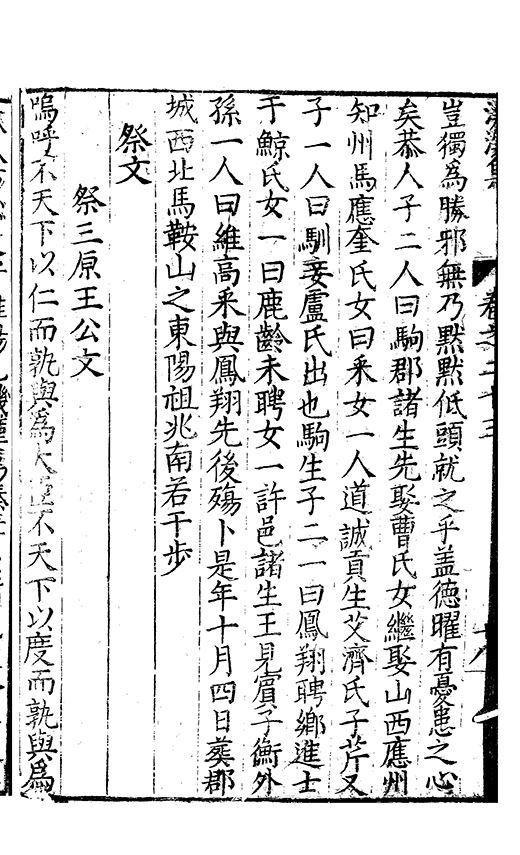 卷之二十三
豈獨為勝邪無乃默默低頭就之乎盖德曜有憂患之心
矣恭人子二人曰駒郡諸生先娶曹氏女繼娶山西應州
知州馬應奎氏女曰釆女一人道誠貢生艾濟氏子芹又
子一人曰馴妾盧氏出也駒生子二一曰鳳翔聘鄉進士
于鯨氏女一曰鹿齡未聘女一許邑諸生王見賓子衡外
孫一人曰維高釆與鳳翔先後殤卜是年十月四日葬郡
城西北馬鞍山之東陽祖兆南若干步
祭文
祭三原王公文
嗚呼不天下以仁而孰與為大不天下以度而孰與為